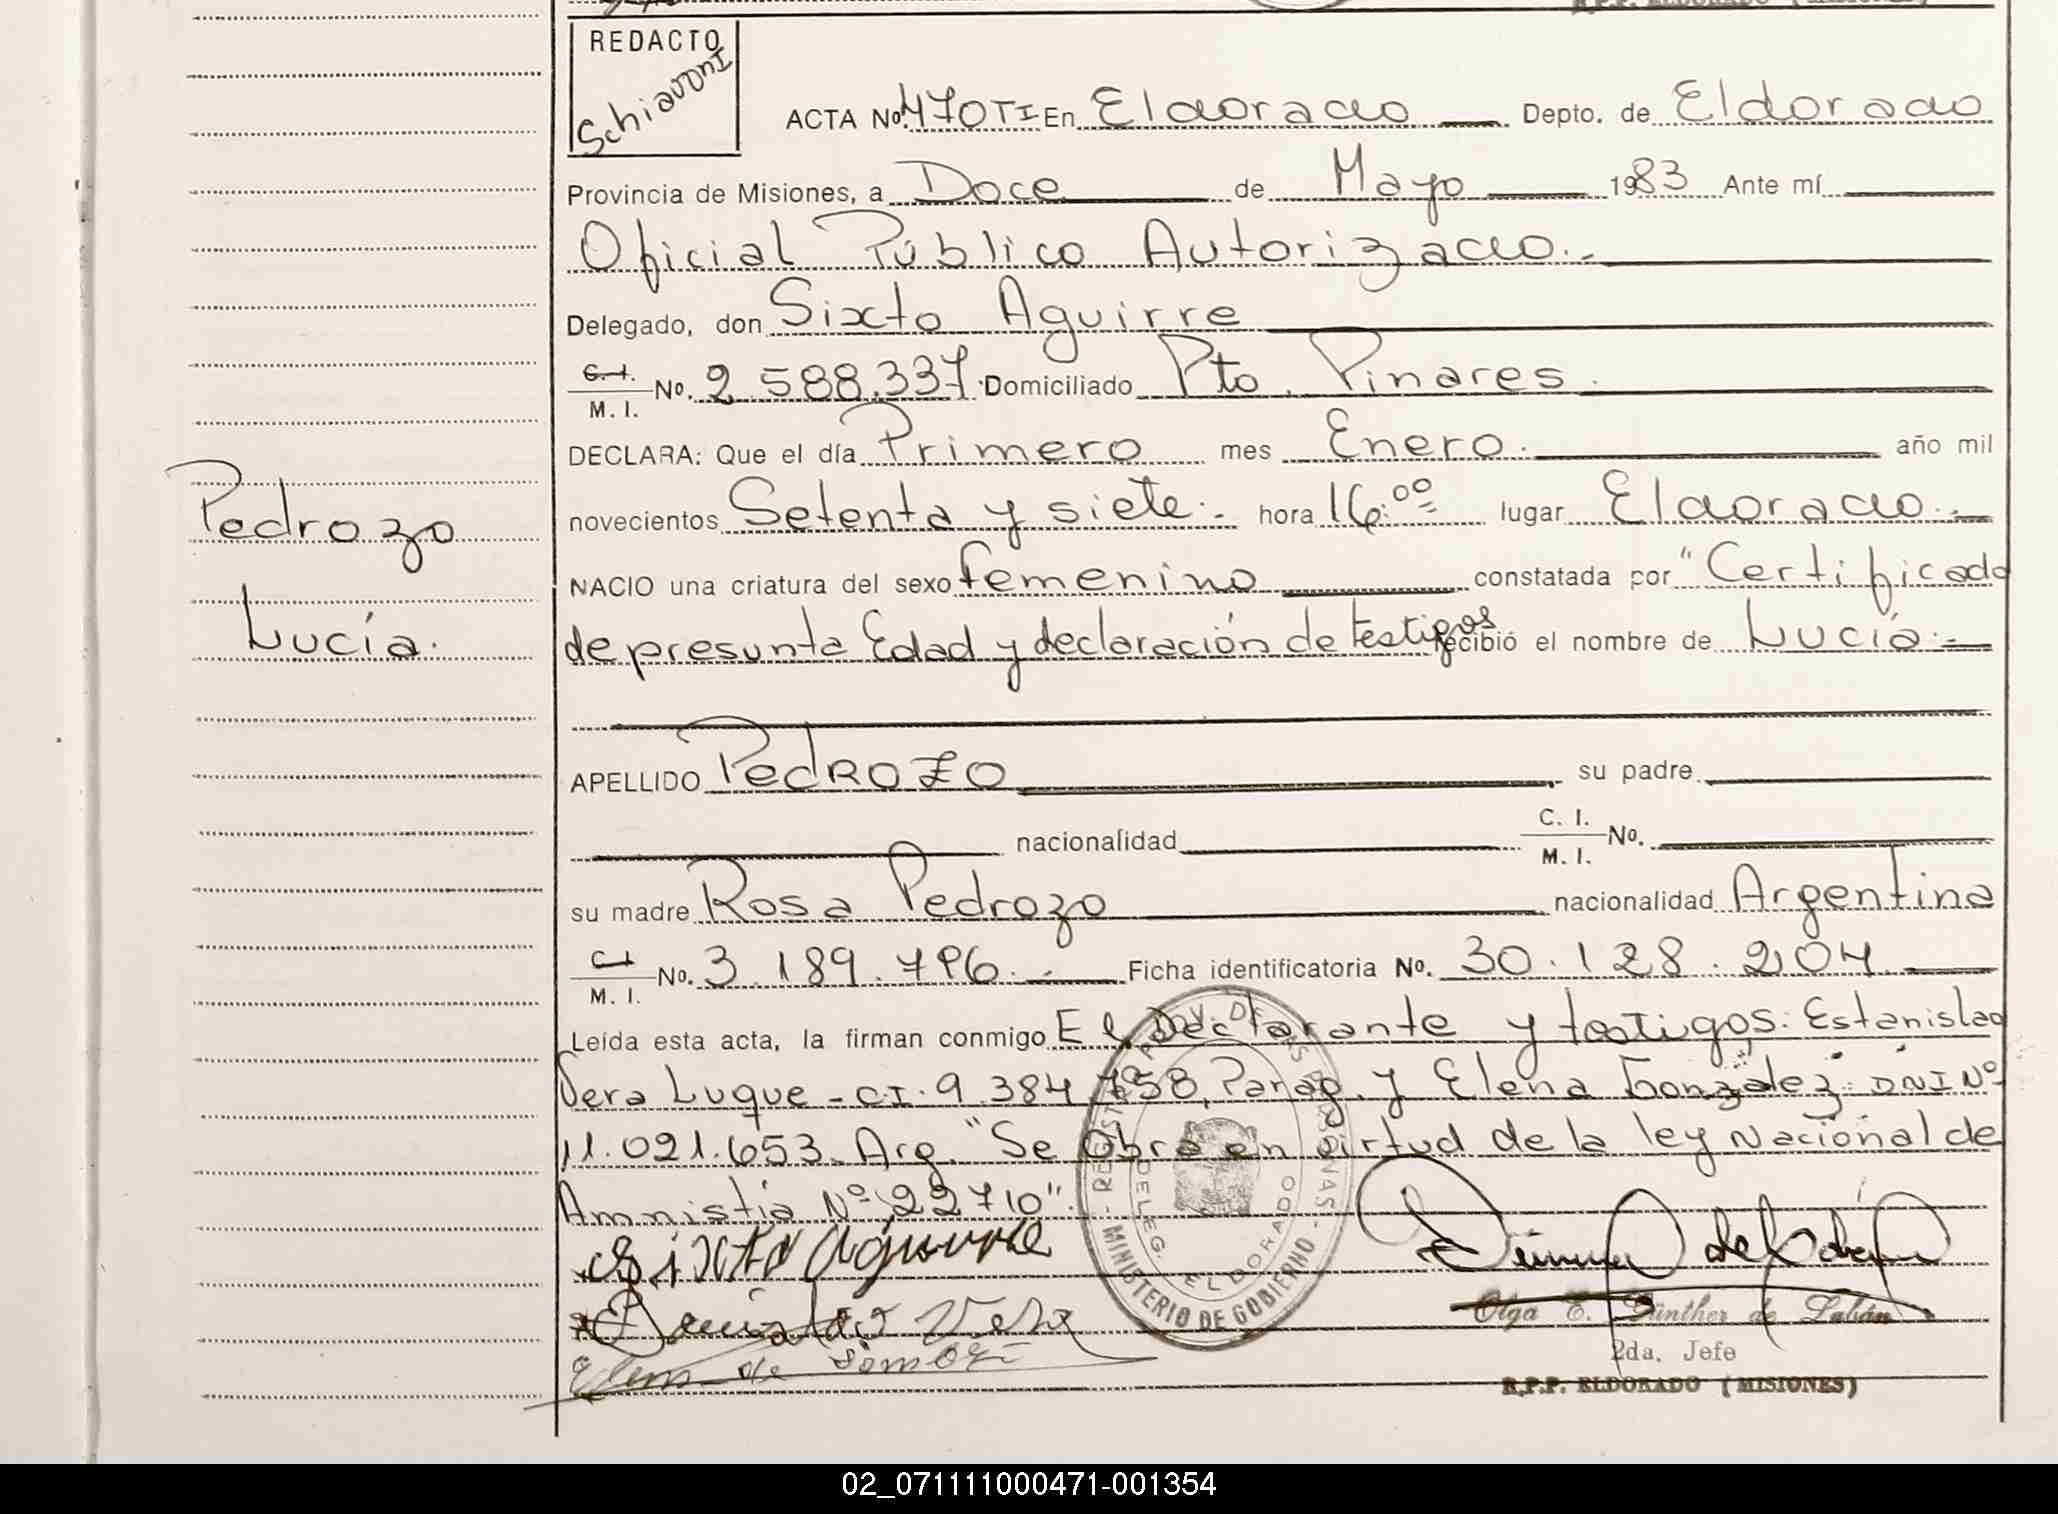 R.P.P. ELDORADO (MISIONES)
REDACTO
Schiavoni
ACTA No. 470TI En Eldorado Depto. de Eldorado
Provincia de Misiones, a Doce de Mayo 1983 Ante mí
Oficial Público Autorizado.-
Delegado, don Sixto Aguirre
C.I. M.I. No. 2.588.337 Domiciliado Pto. Pinares.
DECLARA: Que el día Primero mes Enero. año mil
novecientos Setenta y siete.- hora 16.00 lugar Eldorado.-
NACIO una criatura del sexo femenino constatada por "Certificado
de presunta Edad y declaración de testigos recibió el nombre de Lucía.-
Pedrozo
Lucía.
APELLIDO Pedrozo su padre
nacionalidad C. I. M. I. No.
su madre Rosa Pedrozo nacionalidad Argentina
C.I. M. I. No. 3.189.796.- Ficha identificatoria No. 30.128.204
Leída esta acta, la firman conmigo El Declarante y testigos: Estanislao
Vera Luque - CI. 9.384.758, Parag. y Elena González: DNI Nº
11.021.653. Arg. "Se Obra en virtud de la ley Nacional de
Amnistía Nº 22710".
Sixto Aguirre
Vera
Elena de
REGISTRO PROV. DE LAS PERSONAS - MINISTERIO DE GOBIERNO -
DELEG. ELDORADO
Olga E. Günther de Labán
2da. Jefe
R.P.P. ELDORADO (MISIONES)
02_071111000471-001354